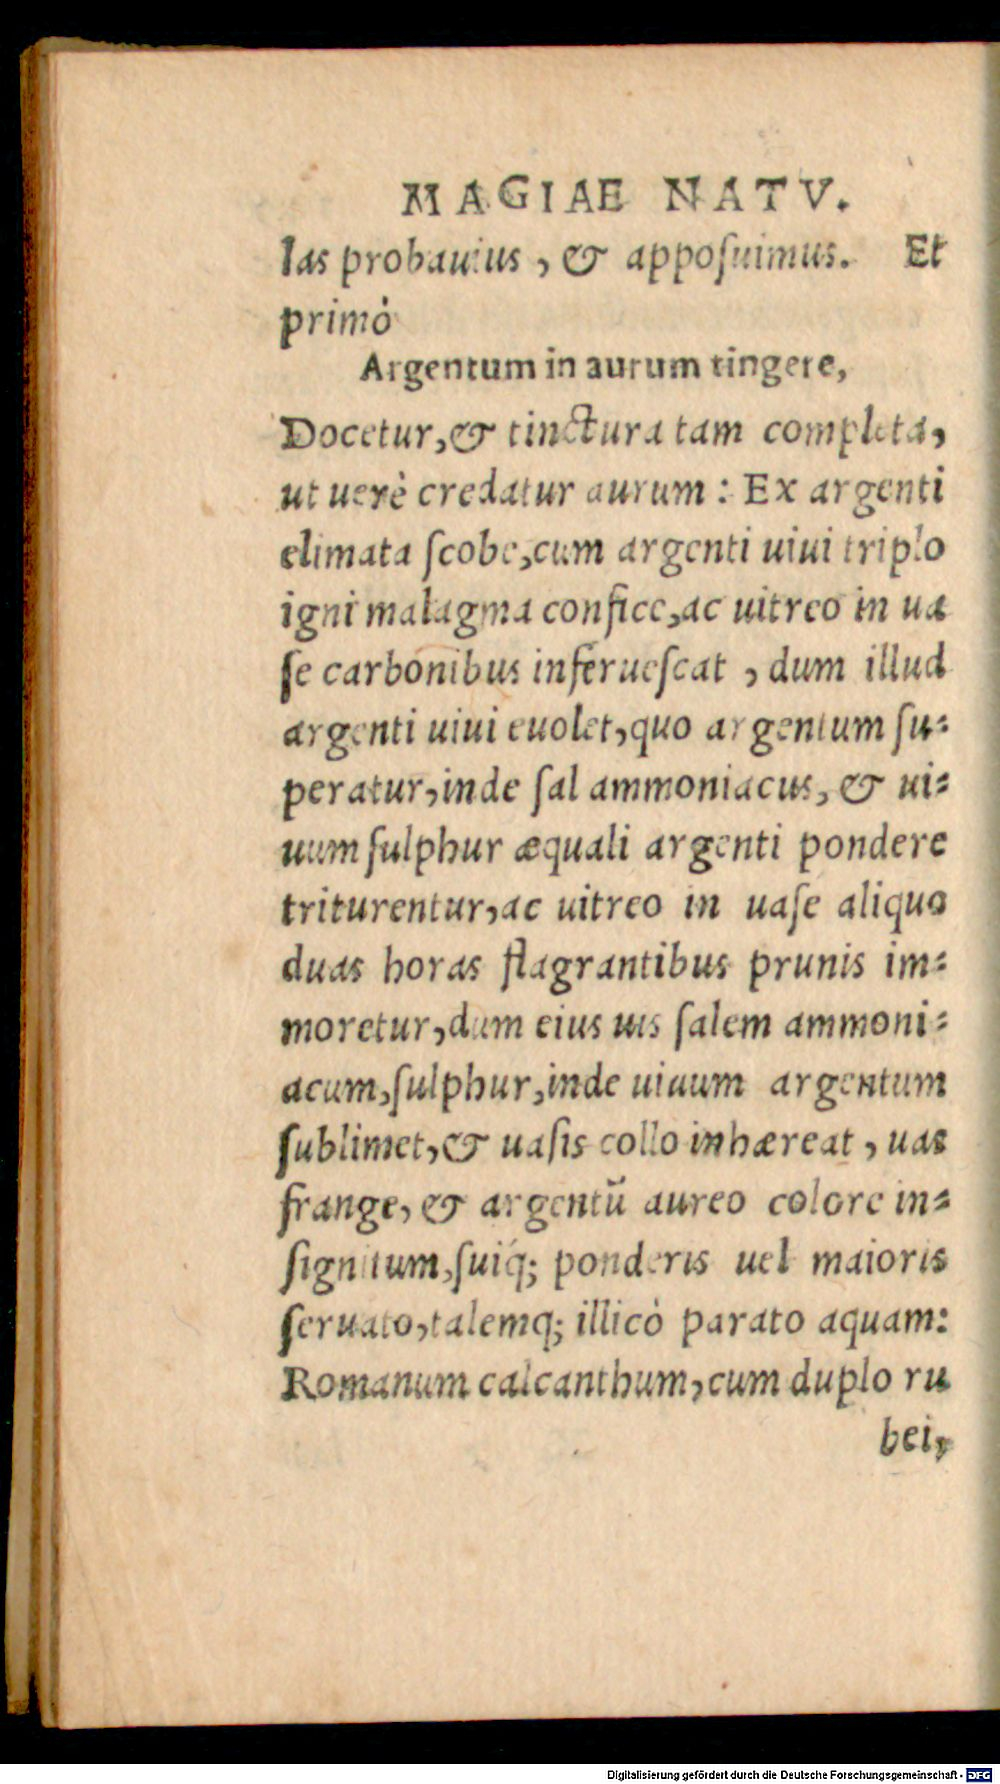 MAGIAE NATV.
las probauius, & apposuimus. Et
primò
Argentum in aurum tingere,
Docetur, & tinctura tam completa,
ut uerè credatur aurum: Ex argenti
elimata ſcobe, cum argenti uiui triplo
igni malagma confice, ac uitreo in ua
ſe carbonibus inferueſcat, dum illud
argenti uiui euolet, quo argentum ſu⸗
peratur, inde ſal ammoniacus, & ui⸗
uum ſulphur æquali argenti pondere
triturentur, ac uitreo in uaſe aliquo
duas horas flagrantibus prunis im⸗
moretur, dum eius uis ſalem ammoni⸗
acum, ſulphur, inde uiuum argentum
ſublimet, & uaſis collo inhæreat, uas
frange, & argentũ aureo colore in⸗
ſignitum, ſuiq́; ponderis uel maioris
ſeruato, talemq; illicò parato aquam:
Romanum calcanthum, cum duplo ru
bei,
Digitalisierung gefördert durch die Deutsche Forschungsgemeinschaft - DFG